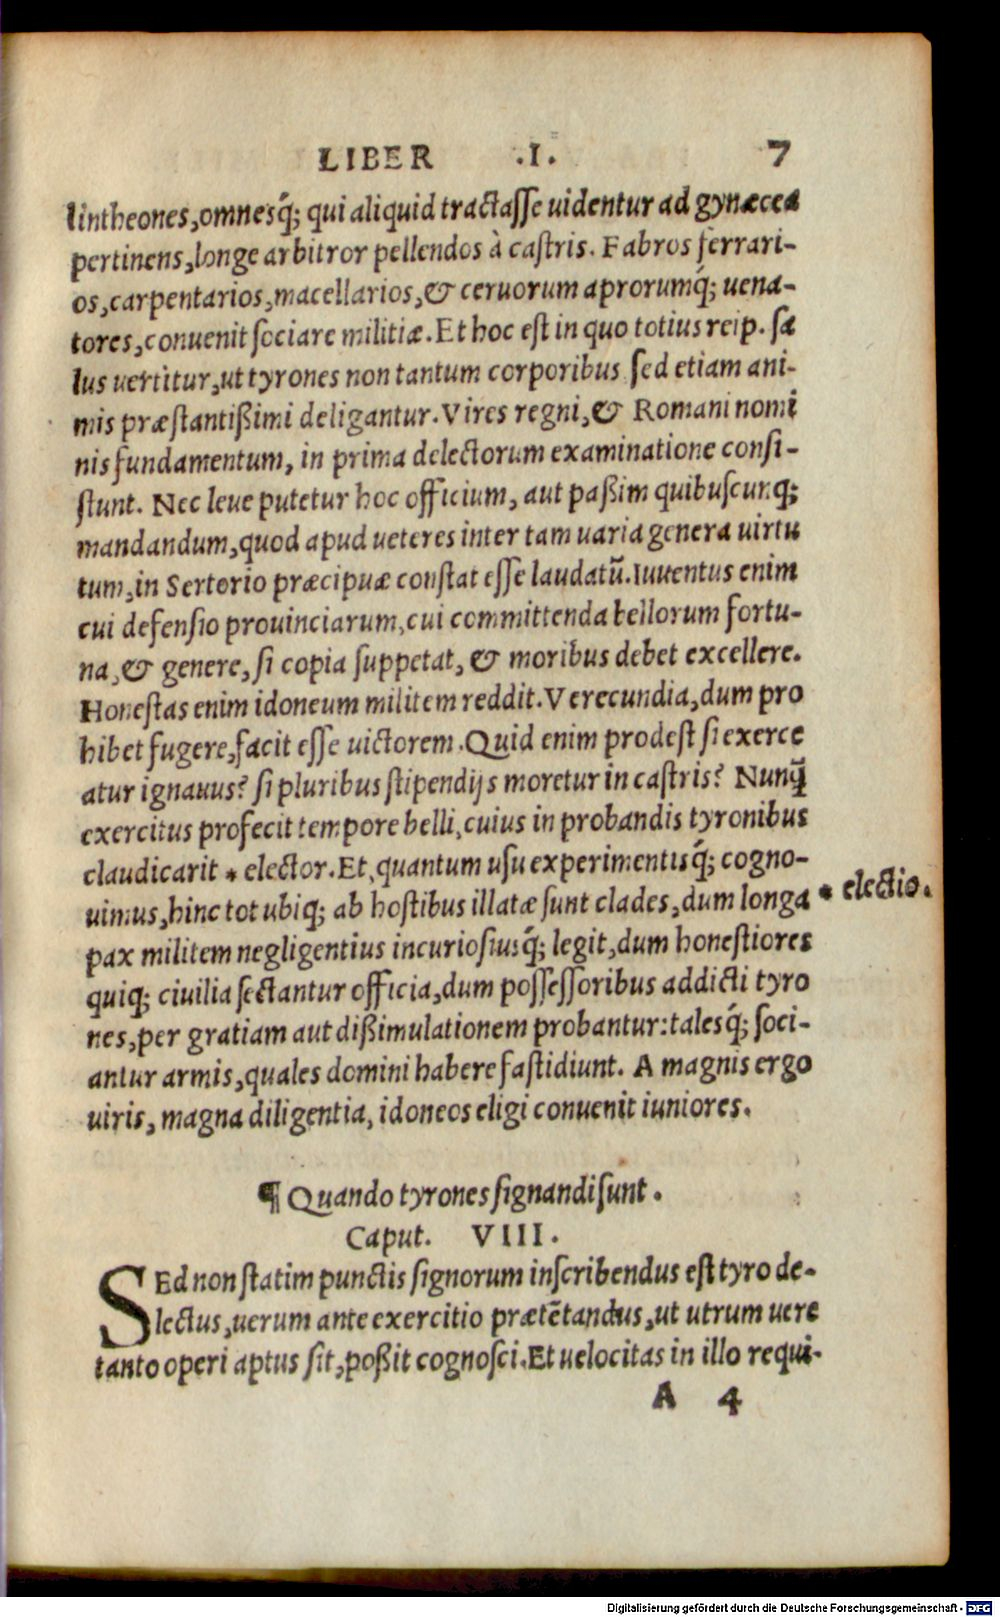 LIBER .I. 7
lintheones,omnesq́; qui aliquid tractasse uidentur ad gynæcea
pertinens,longe arbitror pellendos à castris. Fabros ferrari-
os,carpentarios,macellarios,& ceruorum aprorumq́; uena-
tores,conuenit sociare militiæ. Et hoc est in quo totius reip. sa
lus uertitur,ut tyrones non tantum corporibus sed etiam ani-
mis præstantißimi deligantur. Vires regni,& Romani nomi
nis fundamentum, in prima delectorum examinatione consi-
stunt. Nec leue putetur hoc officium, aut paßim quibuscunq;
mandandum,quod apud ueteres inter tam uaria genera uirtu
tum,in Sertorio præcipuæ constat esse laudatũ. Iuuentus enim
cui defensio prouinciarum,cui committenda bellorum fortu-
na,& genere, si copia suppetat, & moribus debet excellere.
Honestas enim idoneum militem reddit. Verecundia,dum pro
hibet fugere,facit esse uictorem. Quid enim prodest si exerce
atur ignauus? si pluribus stipendijs moretur in castris? Nunq̃
exercitus profecit tempore belli,cuius in probandis tyronibus
claudicarit * elector. Et,quantum usu experimentisq́; cogno-
uimus,hinc tot ubiq; ab hostibus illatæ sunt clades,dum longa * electio.
pax militem negligentius incuriosiusq́; legit,dum honestiores
quiq; ciuilia sectantur officia,dum possessoribus addicti tyro
nes,per gratiam aut dißimulationem probantur: talesq́; soci-
antur armis,quales domini habere fastidiunt. A magnis ergo
uiris, magna diligentia, idoneos eligi conuenit iuniores.
¶ Quando tyrones signandi sunt.
Caput. VIII.
SEd non statim punctis signorum inscribendus est tyro de-
lectus,uerum ante exercitio prætẽtandus,ut utrum uere
tanto operi aptus sit,poßit cognosci. Et uelocitas in illo requi-
A 4
Digitalisierung gefördert durch die Deutsche Forschungsgemeinschaft - DFG